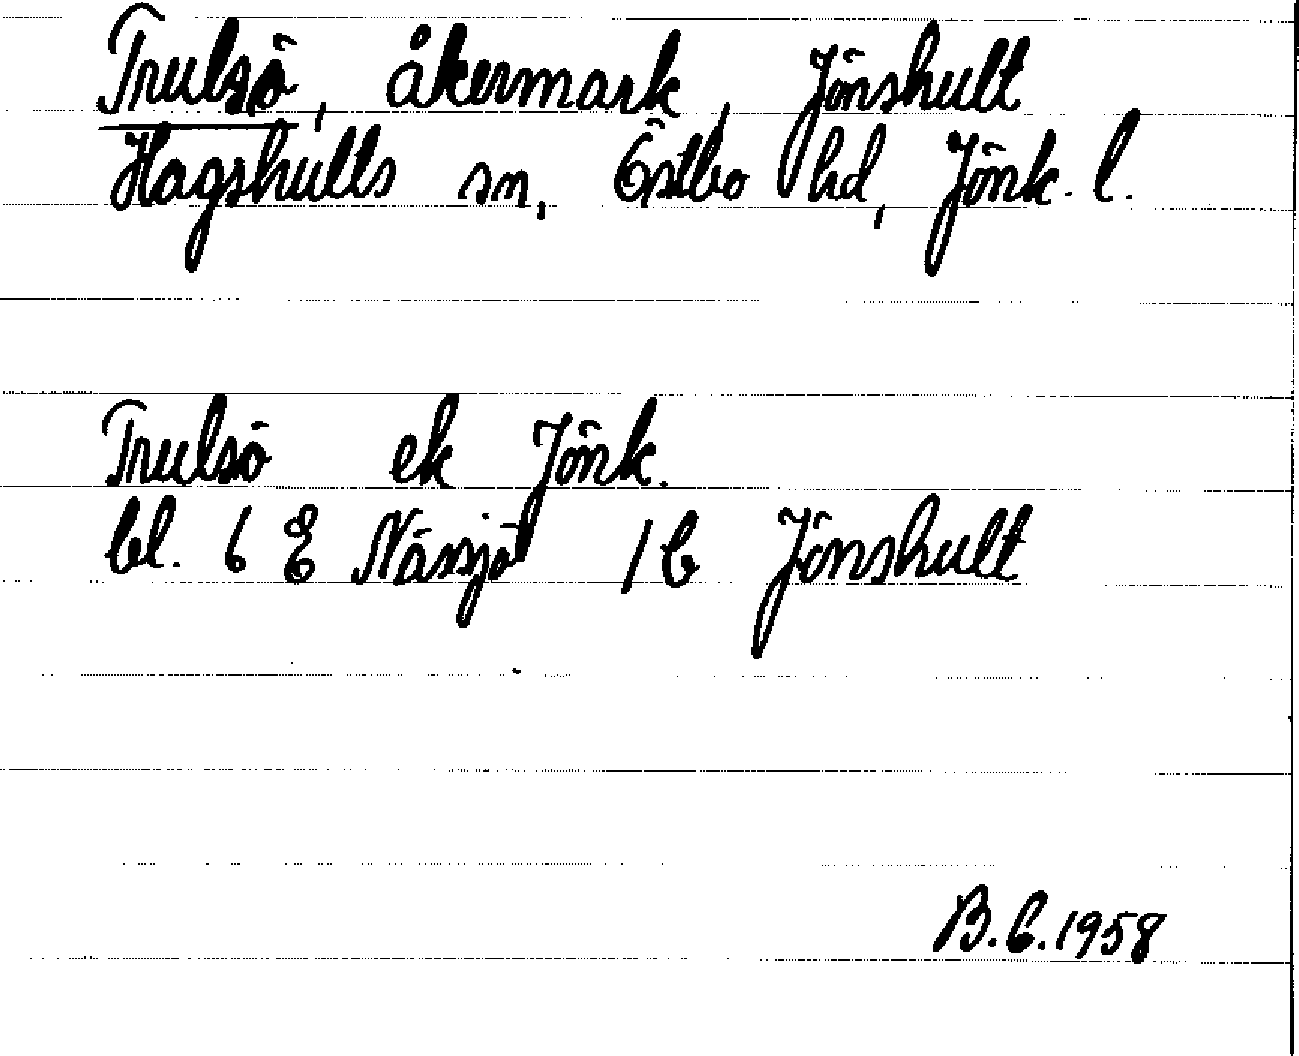 Trulsö, åkermark, Jönshult
Hagshults sn, Östbo hd, Jönk. l.
Trulsö ek Jönk.
bl. 6 E Nässjö 1 C Jönshult
B.C.1958